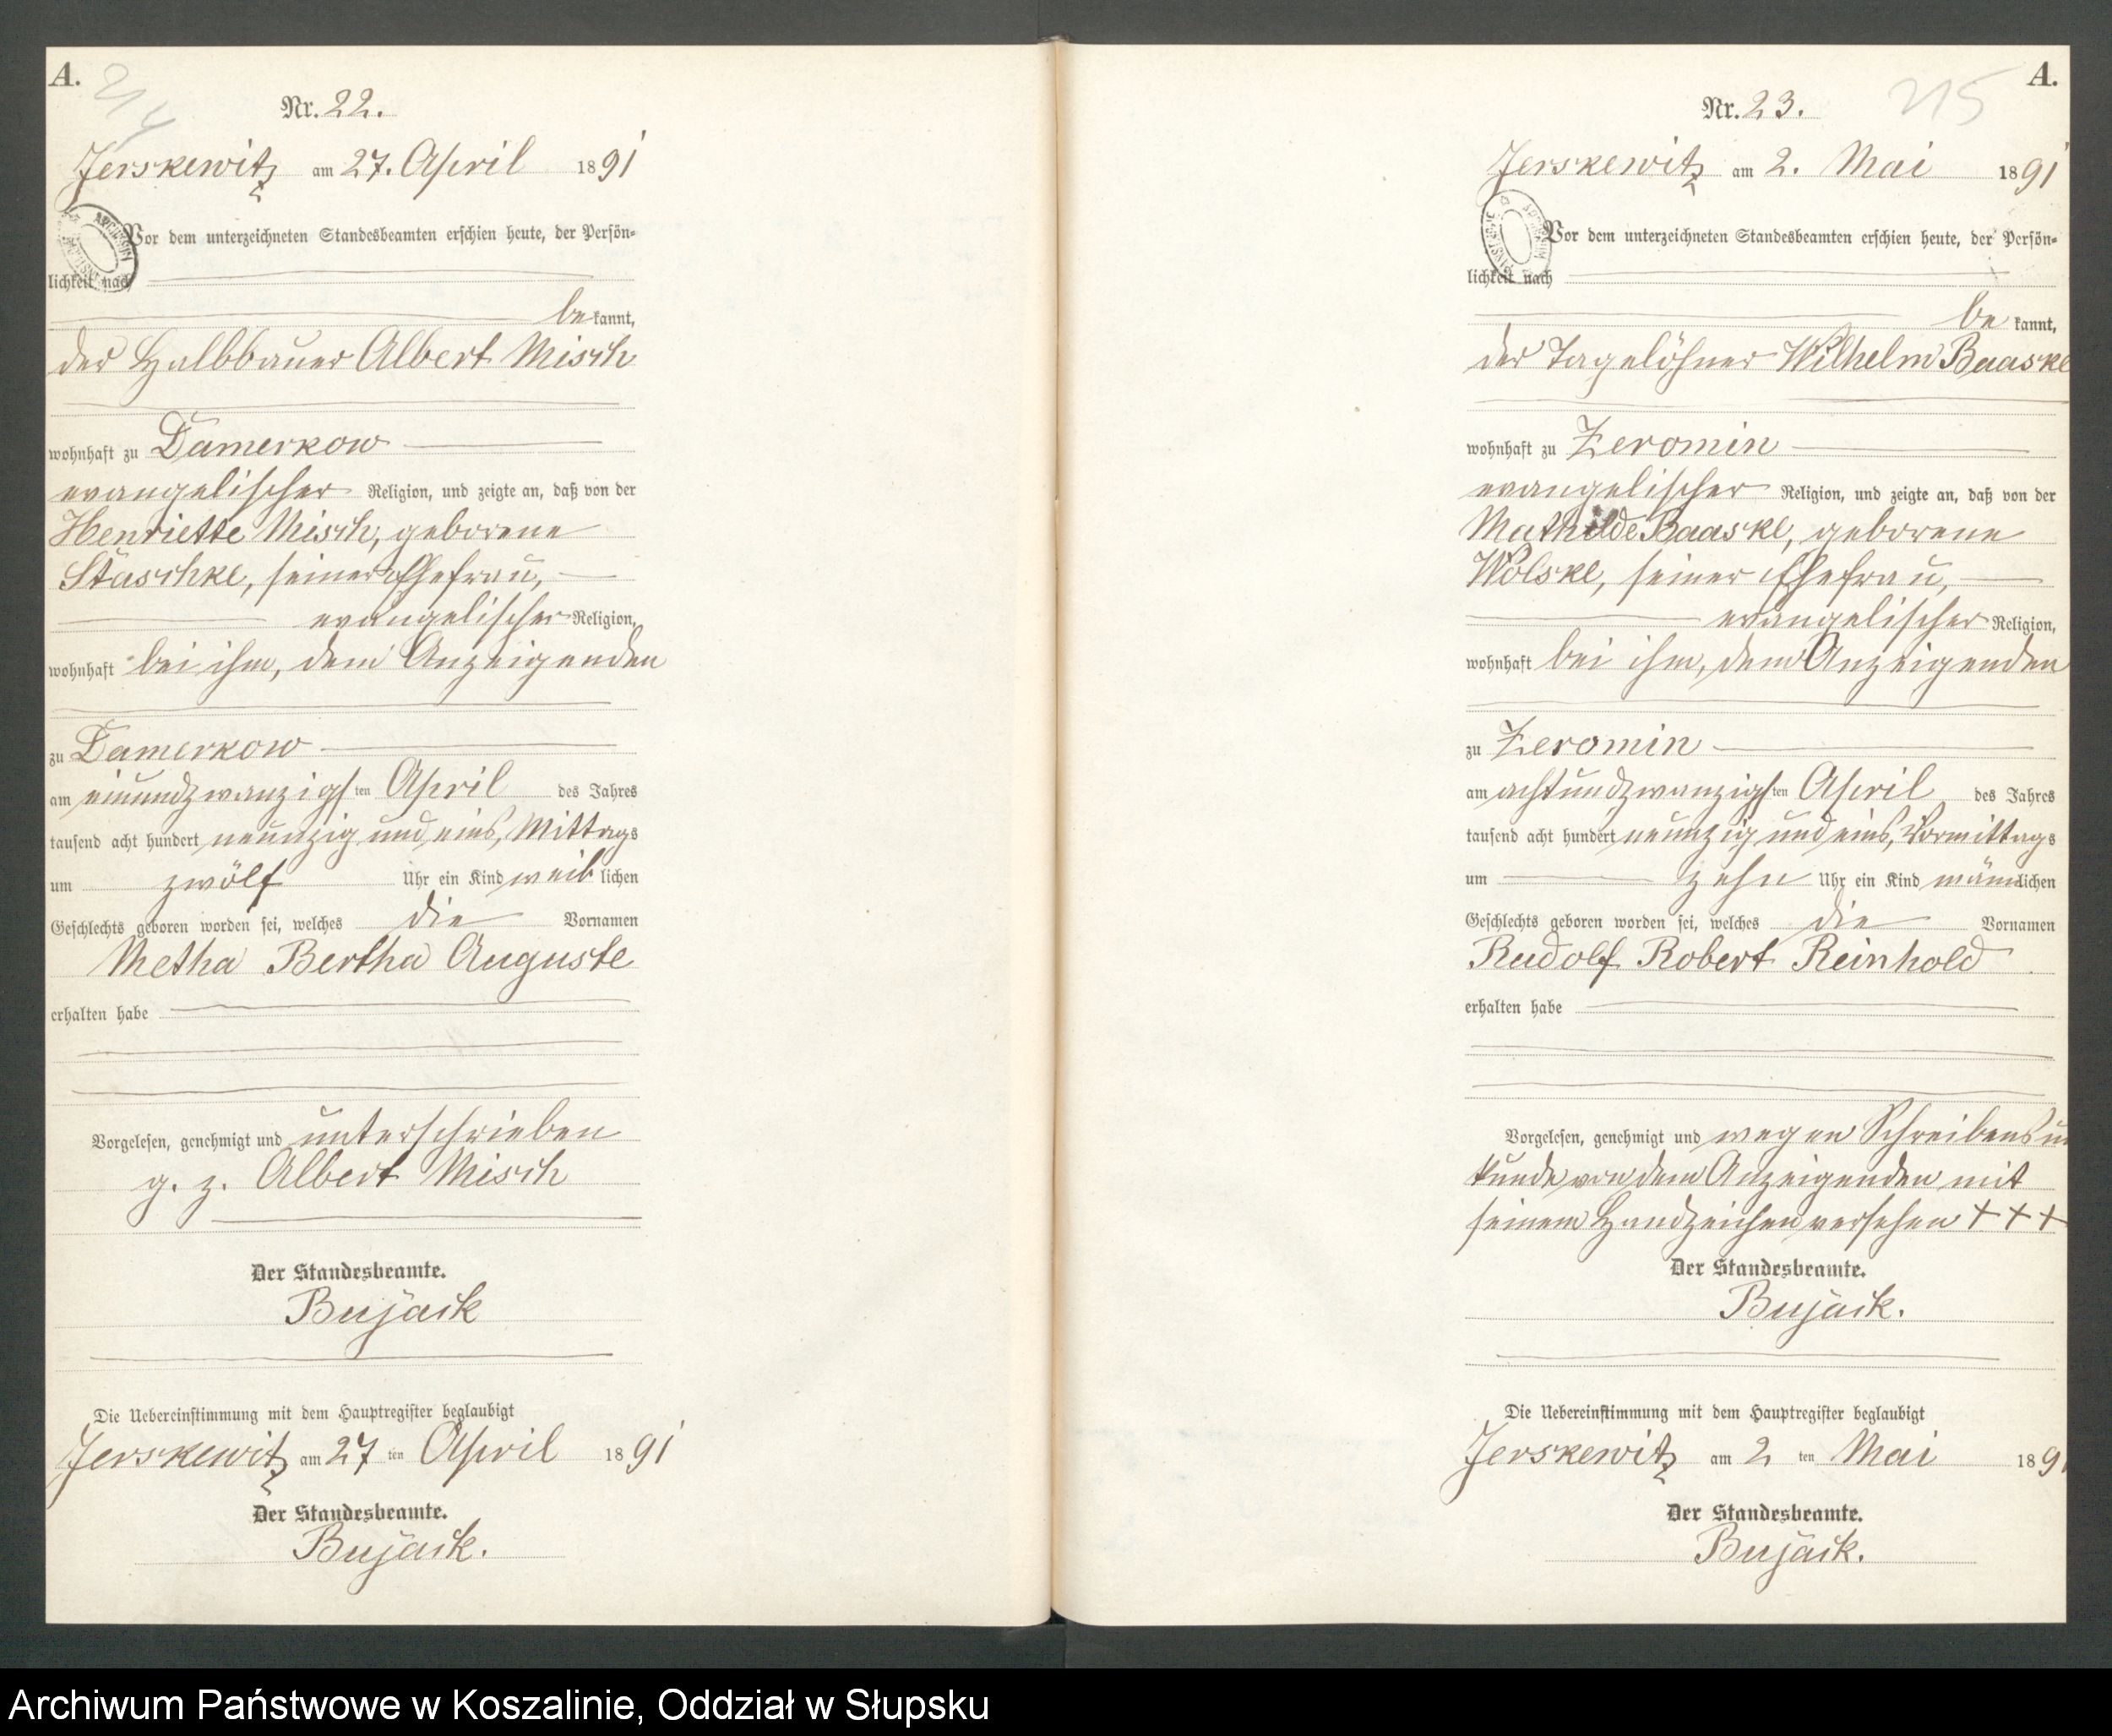 A.
214
Nr. 22.
Jerskewitz am 27. April 1891
Vor dem unterzeichneten Standesbeamten erschien heute, der Persön-
lichkeit nach
bekannt,
der Halbbauer Albert Misch
wohnhaft zu Damerkow
evangelischer Religion, und zeigte an, daß von der
Henriette Misch, geborene
Staschke, seiner Ehefrau,
evangelischer Religion,
wohnhaft bei ihm, dem Anzeigenden
zu Damerkow
am einundzwanzigsten April des Jahres
tausend acht hundert neunzig und eins, Mittags
um zwölf Uhr ein Kind weiblichen
Geschlechts geboren worden sei, welches die Vornamen
Metha Bertha Auguste
erhalten habe
Vorgelesen, genehmigt und unterschrieben
g. z. Albert Misch
Der Standesbeamte.
Bujack
Die Uebereinstimmung mit dem Hauptregister beglaubigt
Jerskewitz am 27 ten April 1891
Der Standesbeamte.
Bujack.
A.
215
Nr. 23.
Jerskewitz am 2. Mai 1891
Vor dem unterzeichneten Standesbeamten erschien heute, der Persön-
lichkeit nach
bekannt,
der Tagelöhner Wilhelm Baaske
wohnhaft zu Zeromin
evangelischer Religion, und zeigte an, daß von der
Mathilde Baaske, geborene
Wolske, seiner Ehefrau,
evangelischer Religion,
wohnhaft bei ihm, dem Anzeigenden
zu Zeromin
am achtundzwanzigsten April des Jahres
tausend acht hundert neunzig und eins, Vormittags
um zehn Uhr ein Kind männlichen
Geschlechts geboren worden sei, welches die Vornamen
Rudolf Robert Reinhold
erhalten habe
Vorgelesen, genehmigt und wegen Schreibensun
kunde von dem Anzeigenden mit
seinem Handzeichen versehen + + +
Der Standesbeamte.
Bujack.
Die Uebereinstimmung mit dem Hauptregister beglaubigt
Jerskewitz am 2 ten Mai 1891
Der Standesbeamte.
Bujack.
Archiwum Państwowe w Koszalinie, Oddział w Słupsku